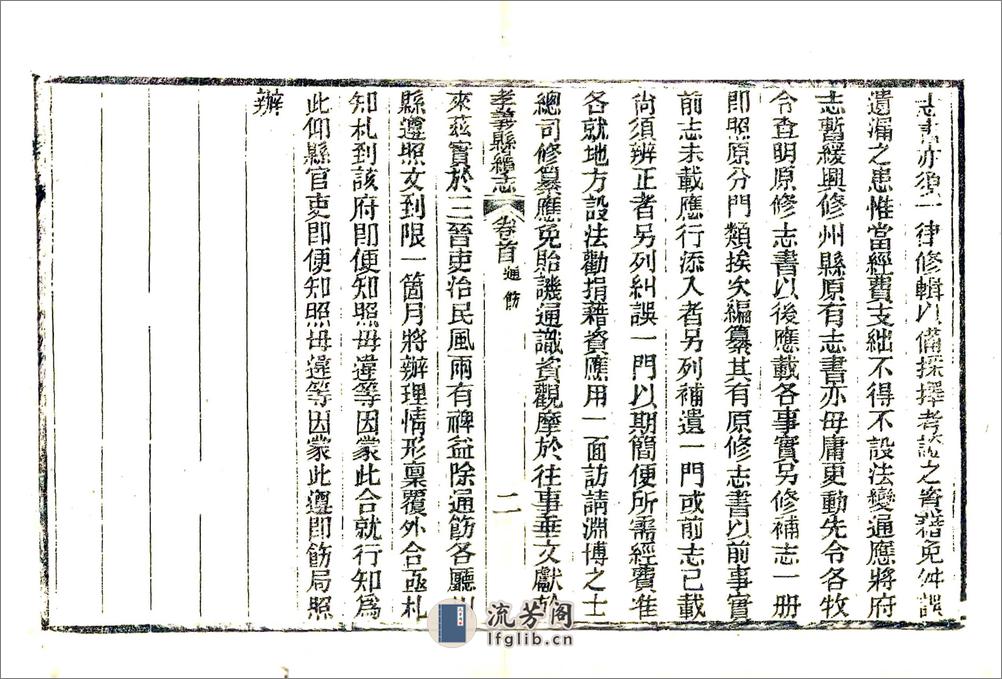 志書亦須一律修輯以備採擇考證之資藉免舛誤
遺漏之患惟當經費支絀不得不設法變通應將府
志暫緩興修州縣原有志書亦毋庸更動先令各牧
令查明原修志書以後應載各事實另修補志一册
即照原分門類挨次編纂其有原修志書以前事實
前志未載應行添入者另列補遺一門或前志已載
尙須辨正者另列糾誤一門以期簡便所需經費准
各就地方設法勸捐藉資應用一面訪請淵博之士
總司修纂應免貽譏通識資觀摩於往事垂文獻於
孝義縣續志 卷首 通飭 二
來茲實於三晉吏治民風兩有裨益除通飭各廳州
縣遵照文到限一箇月將辦理情形稟覆外合亟札
知札到該府即便知照毋違等因蒙此合就行知爲
此仰縣官吏即便知照毋違等因蒙此遵即飭局照
辦
流芳閣
lfglib.cn